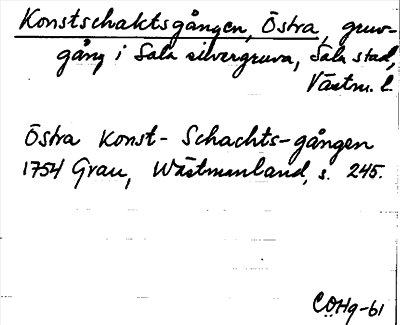 Konstschaktsgången, Östra, gruv-
gång i Sala silvergruva, Sala stad,
Västm. l.
Östra Konst-Schachts-gången
1754 Grau, Wästmanland, s. 245.
CÖHg-61